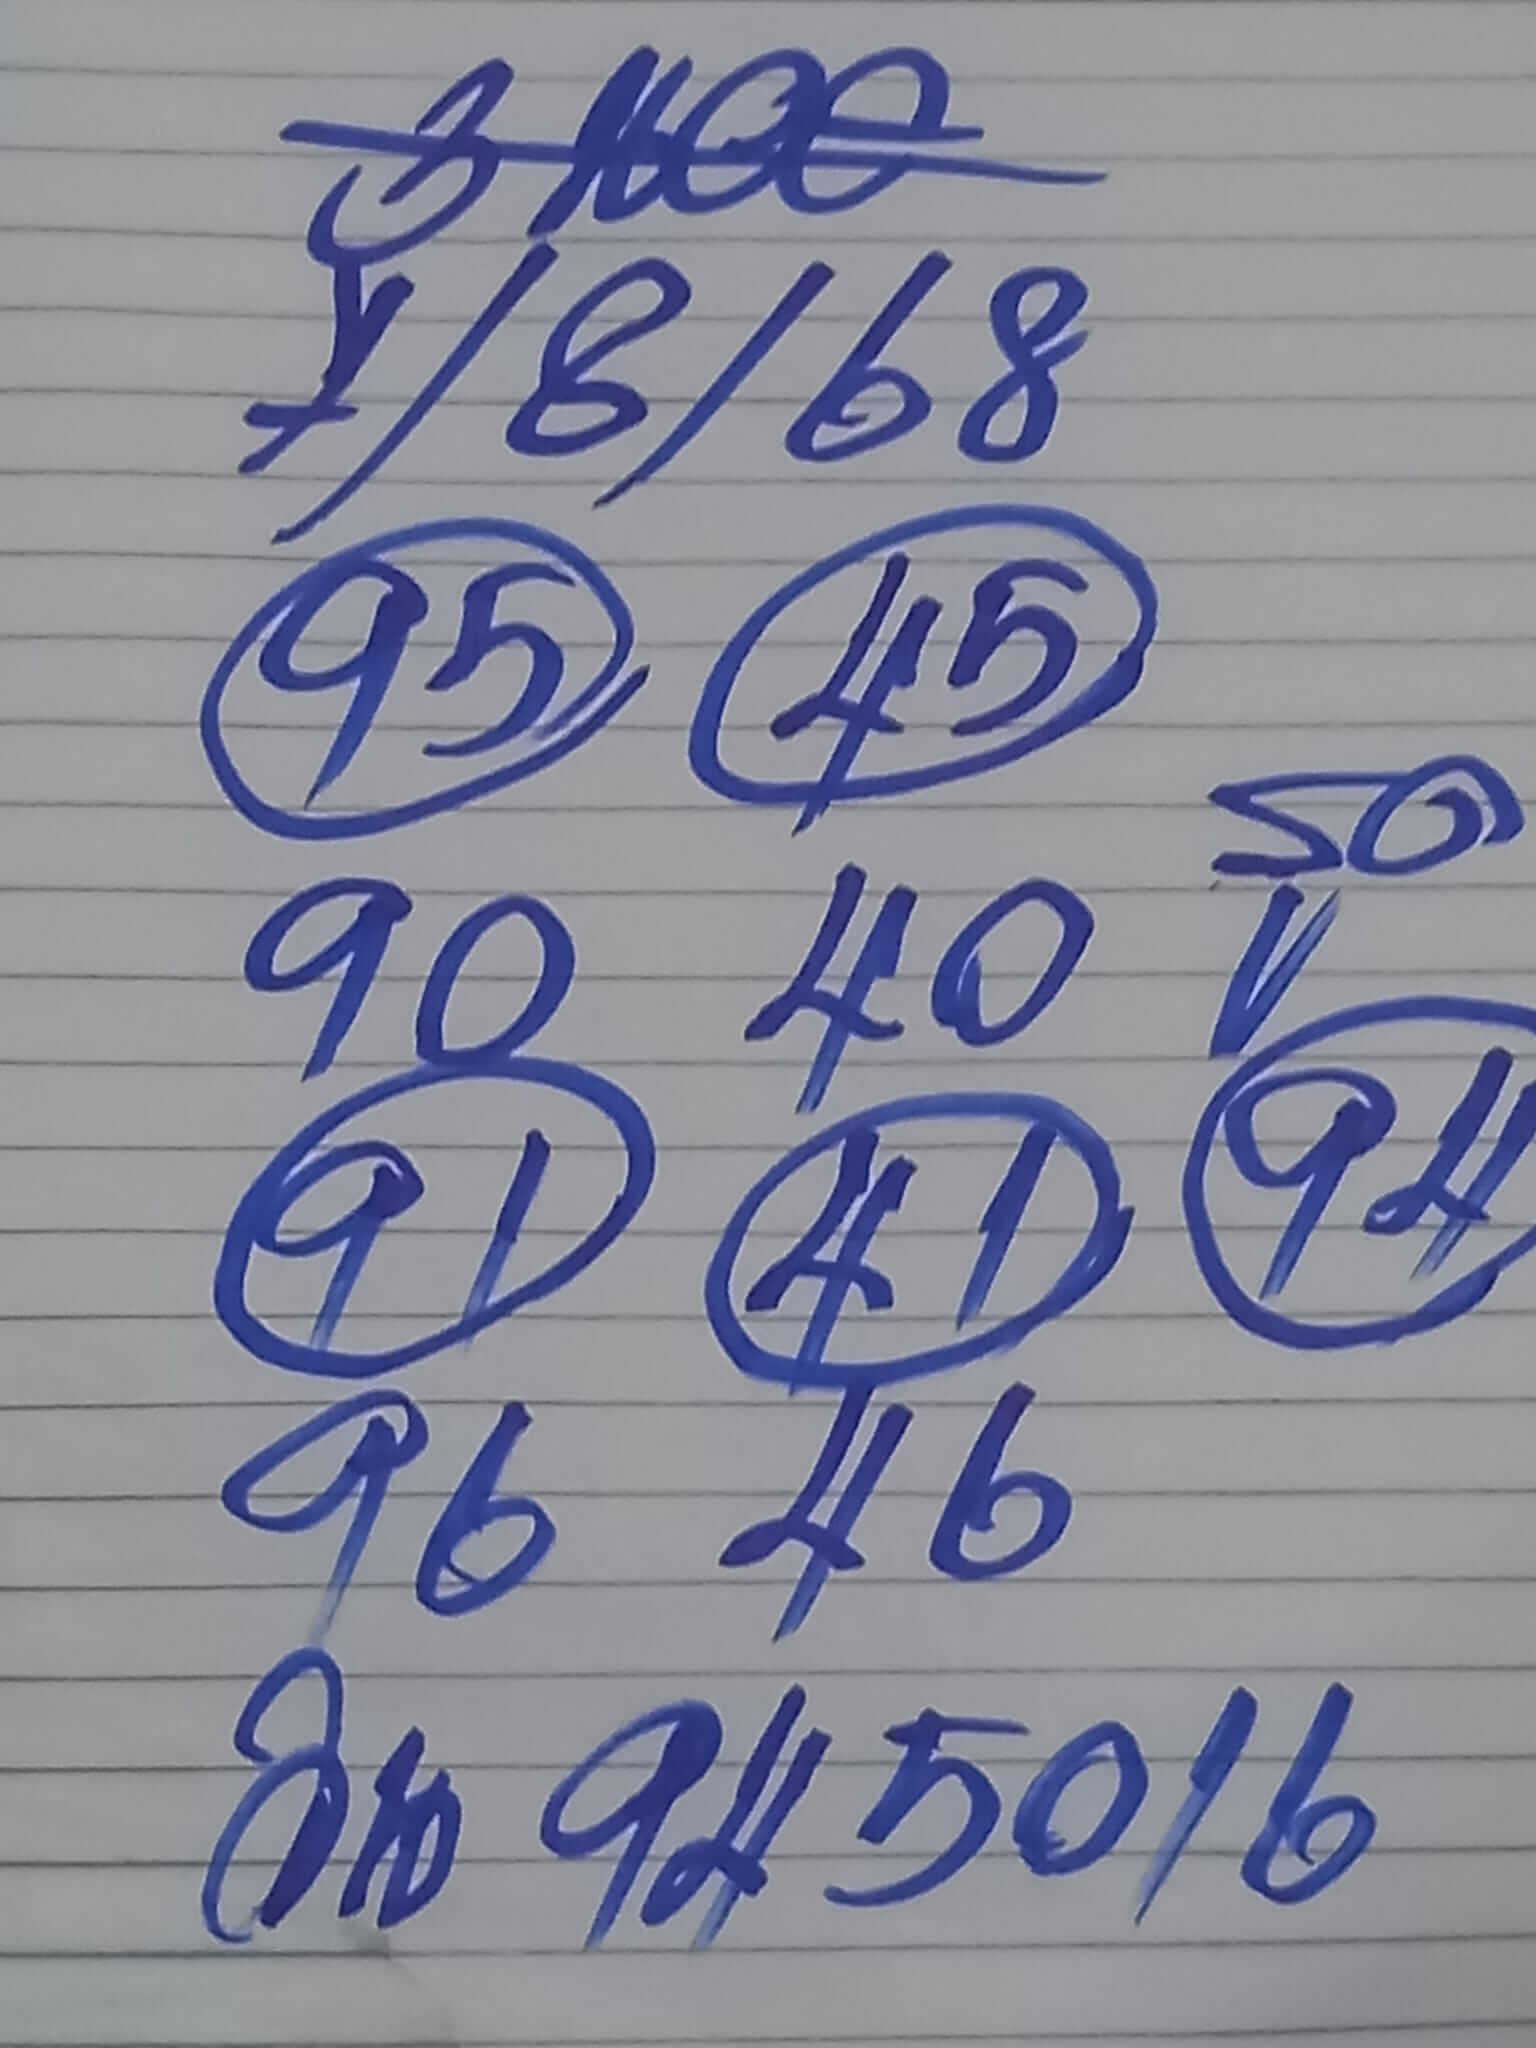 7/8/68
95 45
50
90 40
91 41 94
96 46
945016